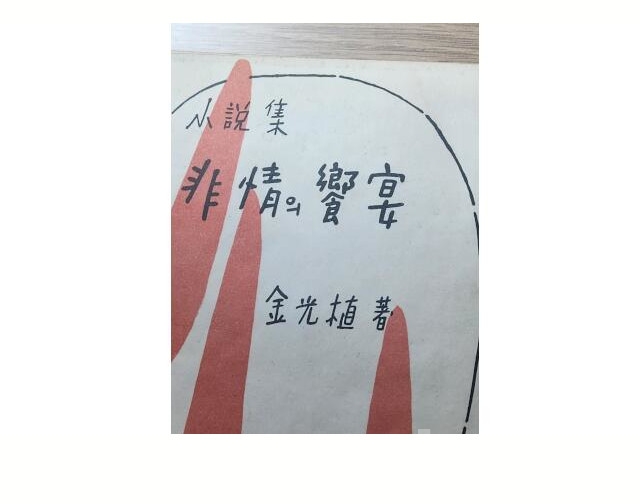 小說集
非情의 饗宴
金光植 著